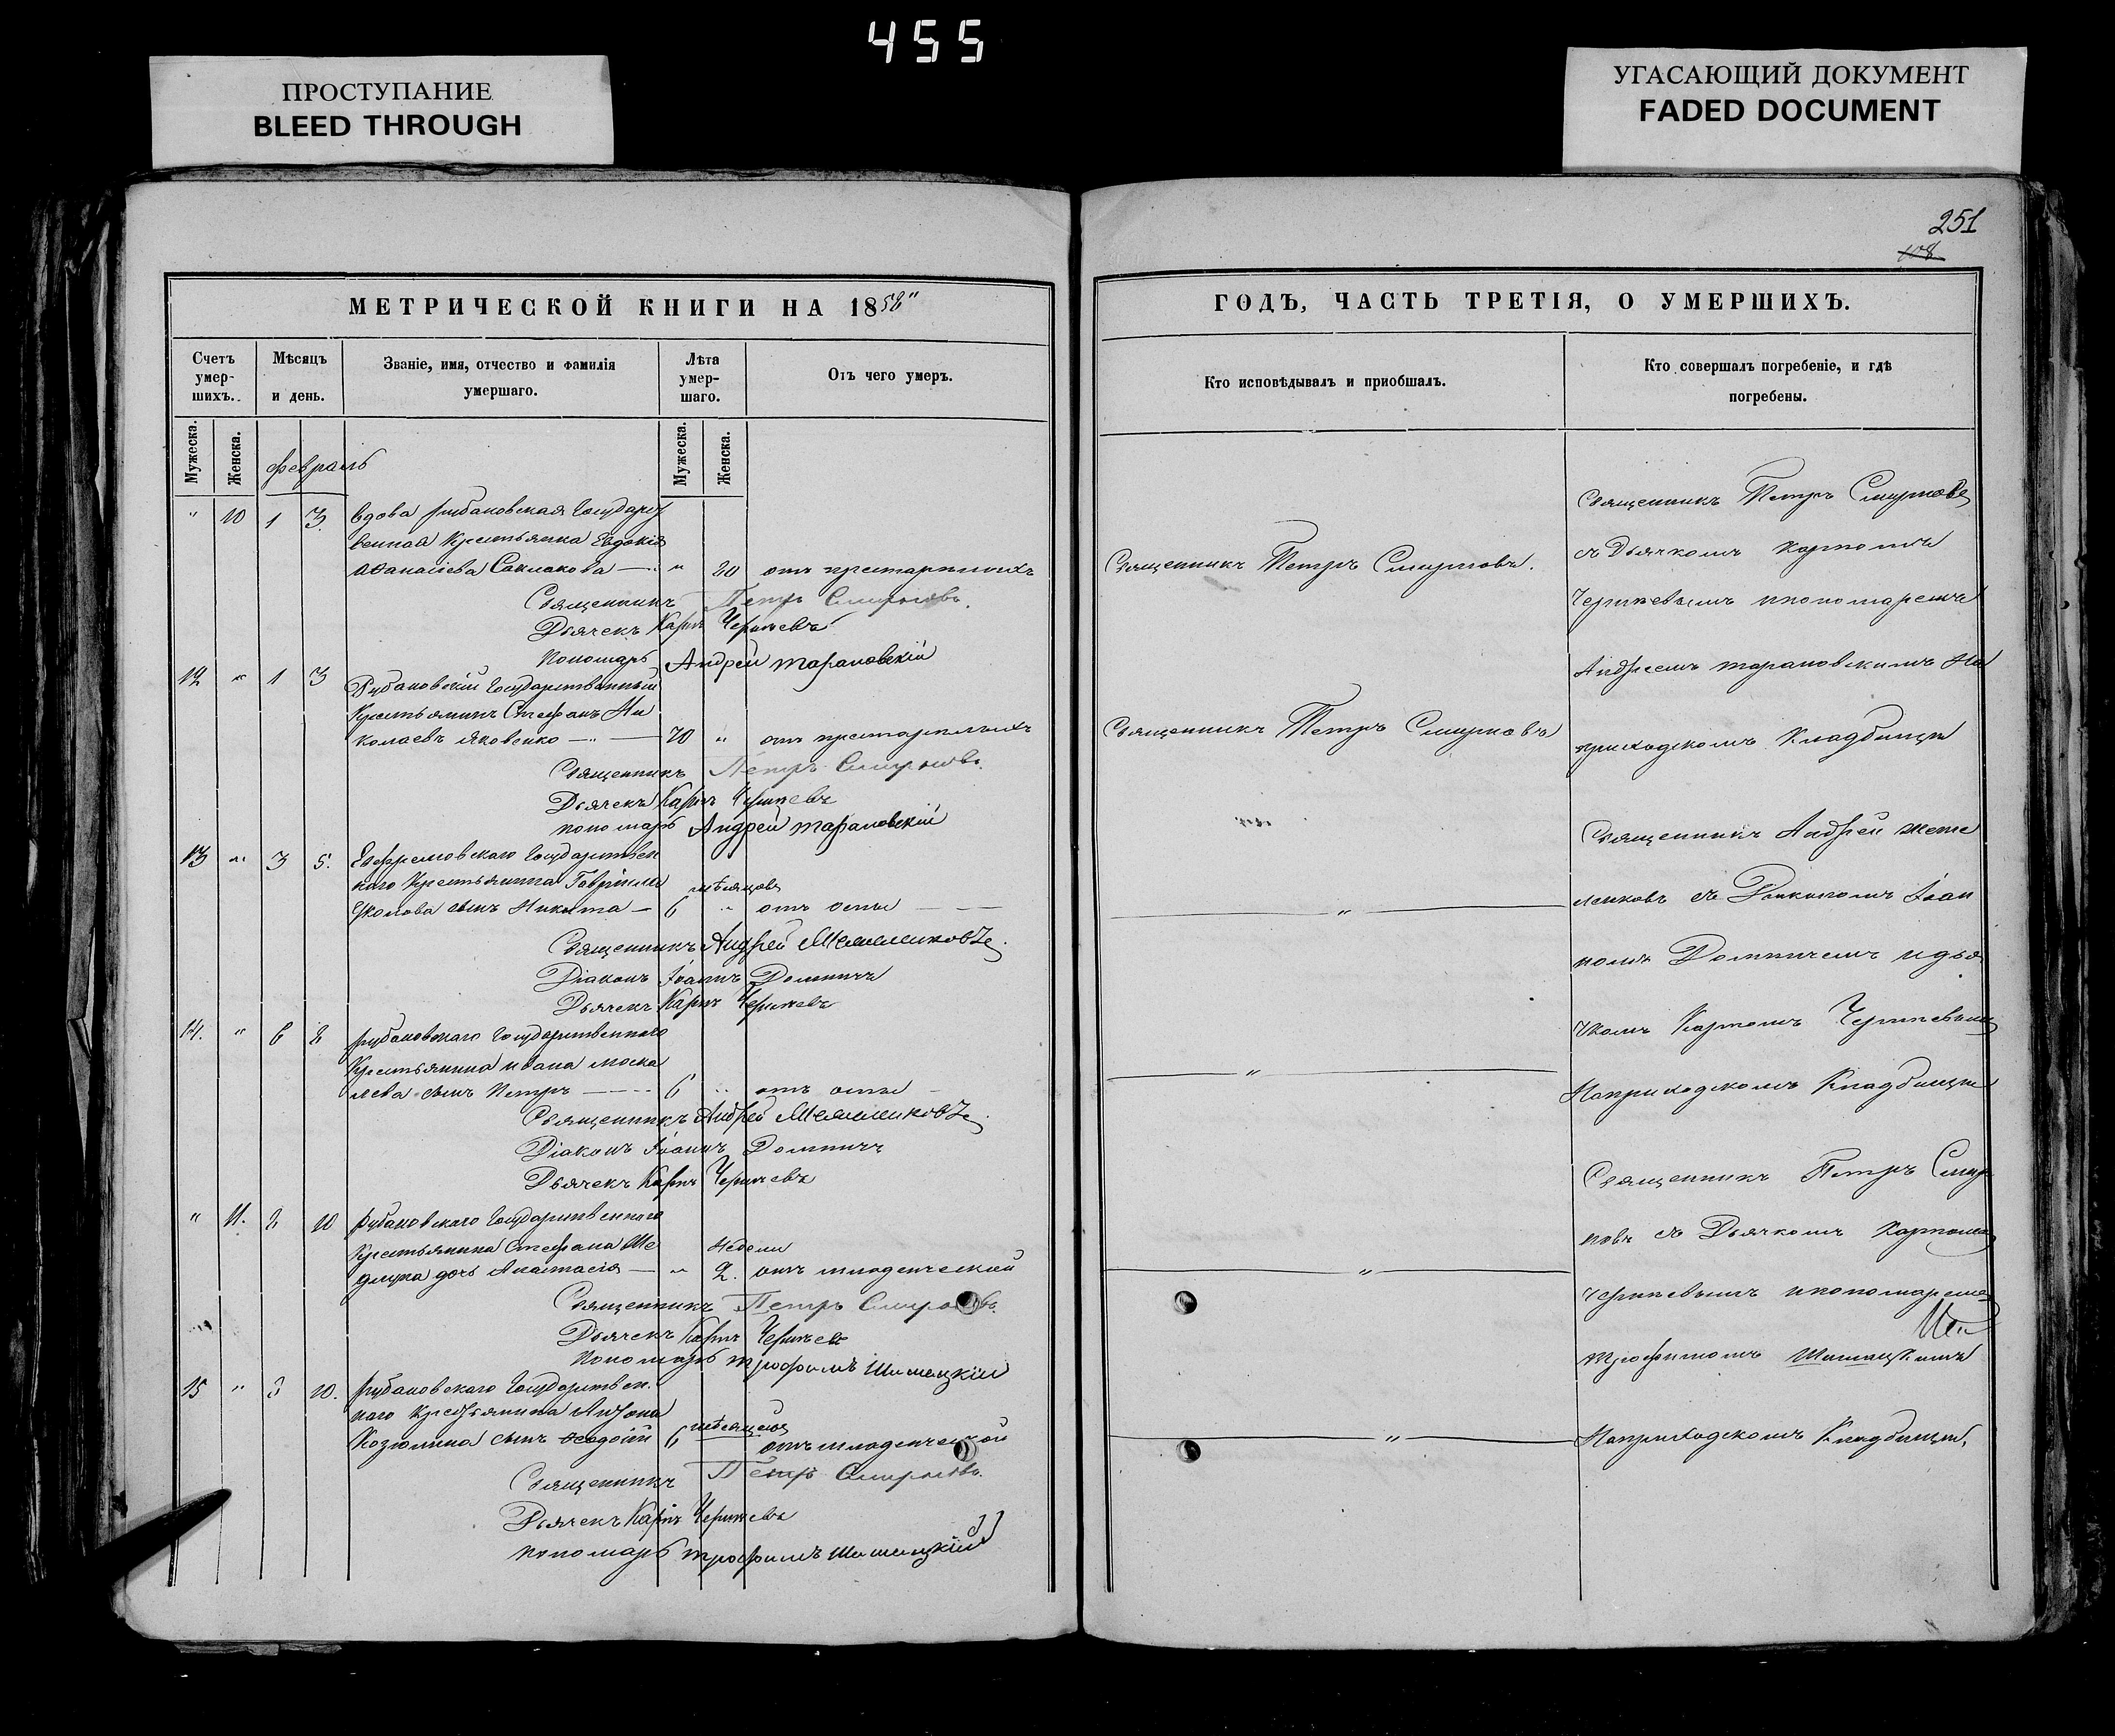 455
ПРОСТУПАНИЕ
BLEED THROUGH
УГАСАЮЩИЙ ДОКУМЕНТ
FADED DOCUMENT
251
108
МЕТРИЧЕСКОЙ КНИГИ НА 1858"
Счетъ умер-шихъ.
Мѣсяцъ и день.
Званіе, имя, отчество и фамилія умершаго.
Лѣта умер-шаго.
Отъ чего умеръ.
Мужеска.
Женска.
Мужеска.
Женска.
февраль
" 10 1 3. Вдова рубановская Государст
венная Крестьянка Евдокія
Аѳанасіева — " 80 отъ престарелыхъ
Священникъ Петръ Смирновъ.
Дьячекъ Карпъ
Пономарь Андрей Тарановскій
12 " 1 3 Рубановскій Государственный
Крестьянинъ Стефанъ Ни
колаевъ Яковенко — 70 " отъ престарелыхъ
Священникъ Петръ Смирновъ.
Дьячекъ Карпъ
пономарь Андрей Тарановскій
13 " 3 5. Ефремовскаго Государствен
наго Крестьянина Гавріила
сынъ Никита — 6 мѣсяцовъ " отъ оспы
Священникъ Андрей
Діаконъ Іоаннъ
Дьячекъ Карпъ
14. " 6 8 рубановскаго Государственнаго
Крестьянина Ивана Моска
лева сынъ Петръ — 6 " отъ оспы
Священникъ Андрей
Діаконъ Іоаннъ
Дьячекъ Карпъ
" 11. 8 10 рубановскаго Государственнаго
Крестьянина Стефана Ше
дочь Анастасія — " Недели 2. отъ младенческой
Священникъ Петръ Смирновъ.
Дьячекъ Карпъ
Пономарь Трофимъ
15 " 10. рубановскаго Государствен.
наго Крестьянина Антона
Козюлина сынъ Ѳеодосій 6 мѣсяцовъ отъ младенческой
Священникъ Петръ Смирновъ.
Дьячекъ Карпъ
пономарь Трофимъ
ГОДЪ, ЧАСТЬ ТРЕТІЯ, О УМЕРШИХЪ.
Кто исповѣдывалъ и пріобщалъ.
Кто совершалъ погребеніе, и гдѣ погребены.
Священникъ Петръ Смирновъ.
Священникъ Петръ Смирновъ
Священникъ Петръ Смирновъ
съ Дьячкомъ Карпомъ
и пономаремъ
Андреемъ Тарановскимъ На
приходскомъ Кладбищи
Священникъ Андрей
съ Діакономъ Іоан
номъ и дья
чкомъ Карпомъ
На приходскомъ Кладбищи
Священникъ Петръ Смир
новъ съ Дьячкомъ Карпомъ
и пономаремъ
Трофимомъ
На приходскомъ Кладбищи,